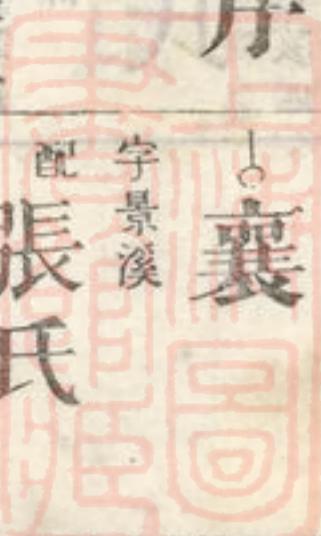 序
襄
字景溪
配張氏